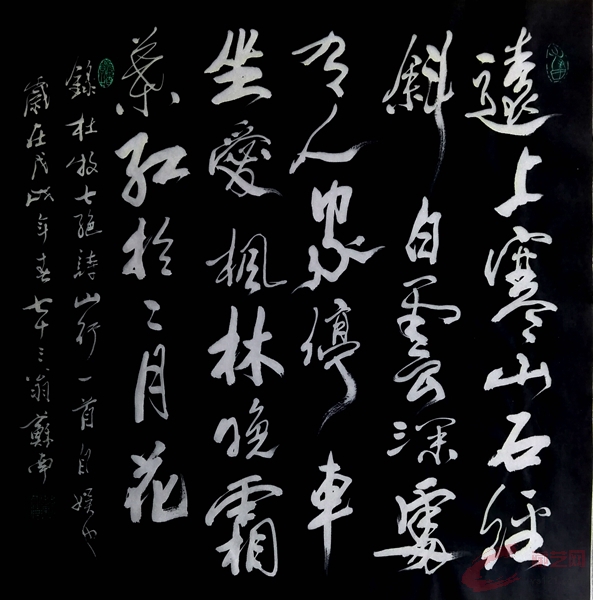 遠上寒山石徑
斜白雲深處
有人家停車
坐愛楓林晚霜
葉紅於二月花
錄杜牧七絕詩山行一首自娛也
歲在戊戌年春七十三翁蘇